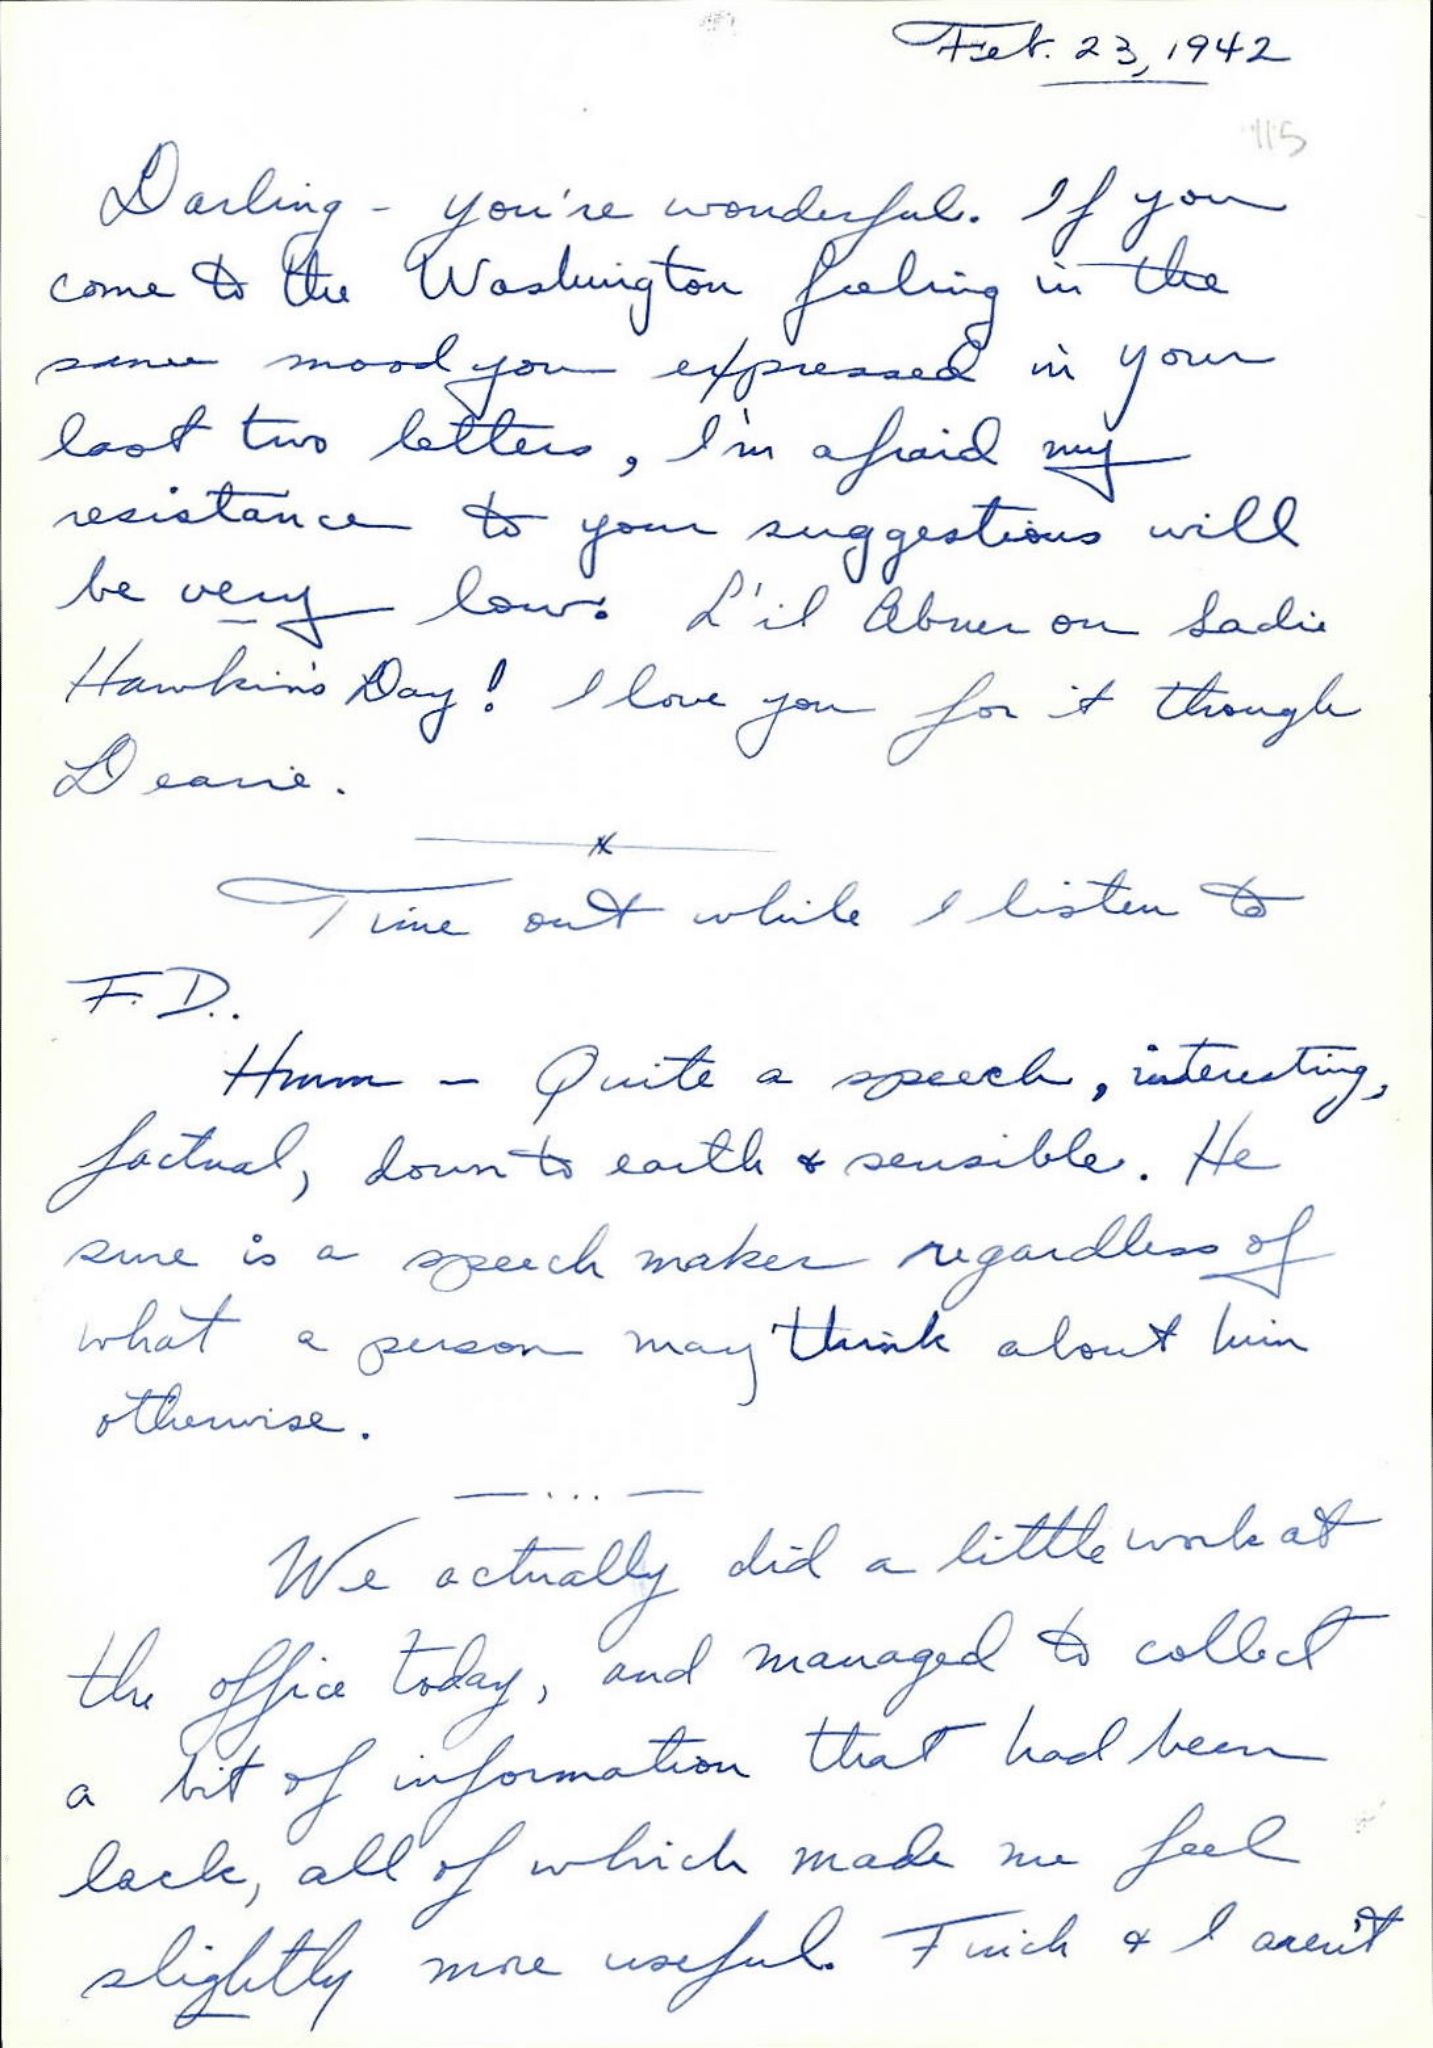 Feb. 23, 1942
115
Darling - you're wonderful. If you
come to the Washington feeling in the
same mood you expressed in your
last two letters, I'm afraid my
resistance to your suggestions will
be very low. L'il Abner on Sadie
Hawkins Day! I love you for it though
Dearie.
x
Time out while I listen to
F. D..
Hmmm - Quite a speech, interesting,
factual, down to earth & sensible. He
sure is a speech maker regardless of
what a person may think about him
otherwise.
— ... —
We actually did a little work at
the office today, and managed to collect
a bit of information that had been
lack, all of which made me feel
slightly more useful. Finch & I aren't